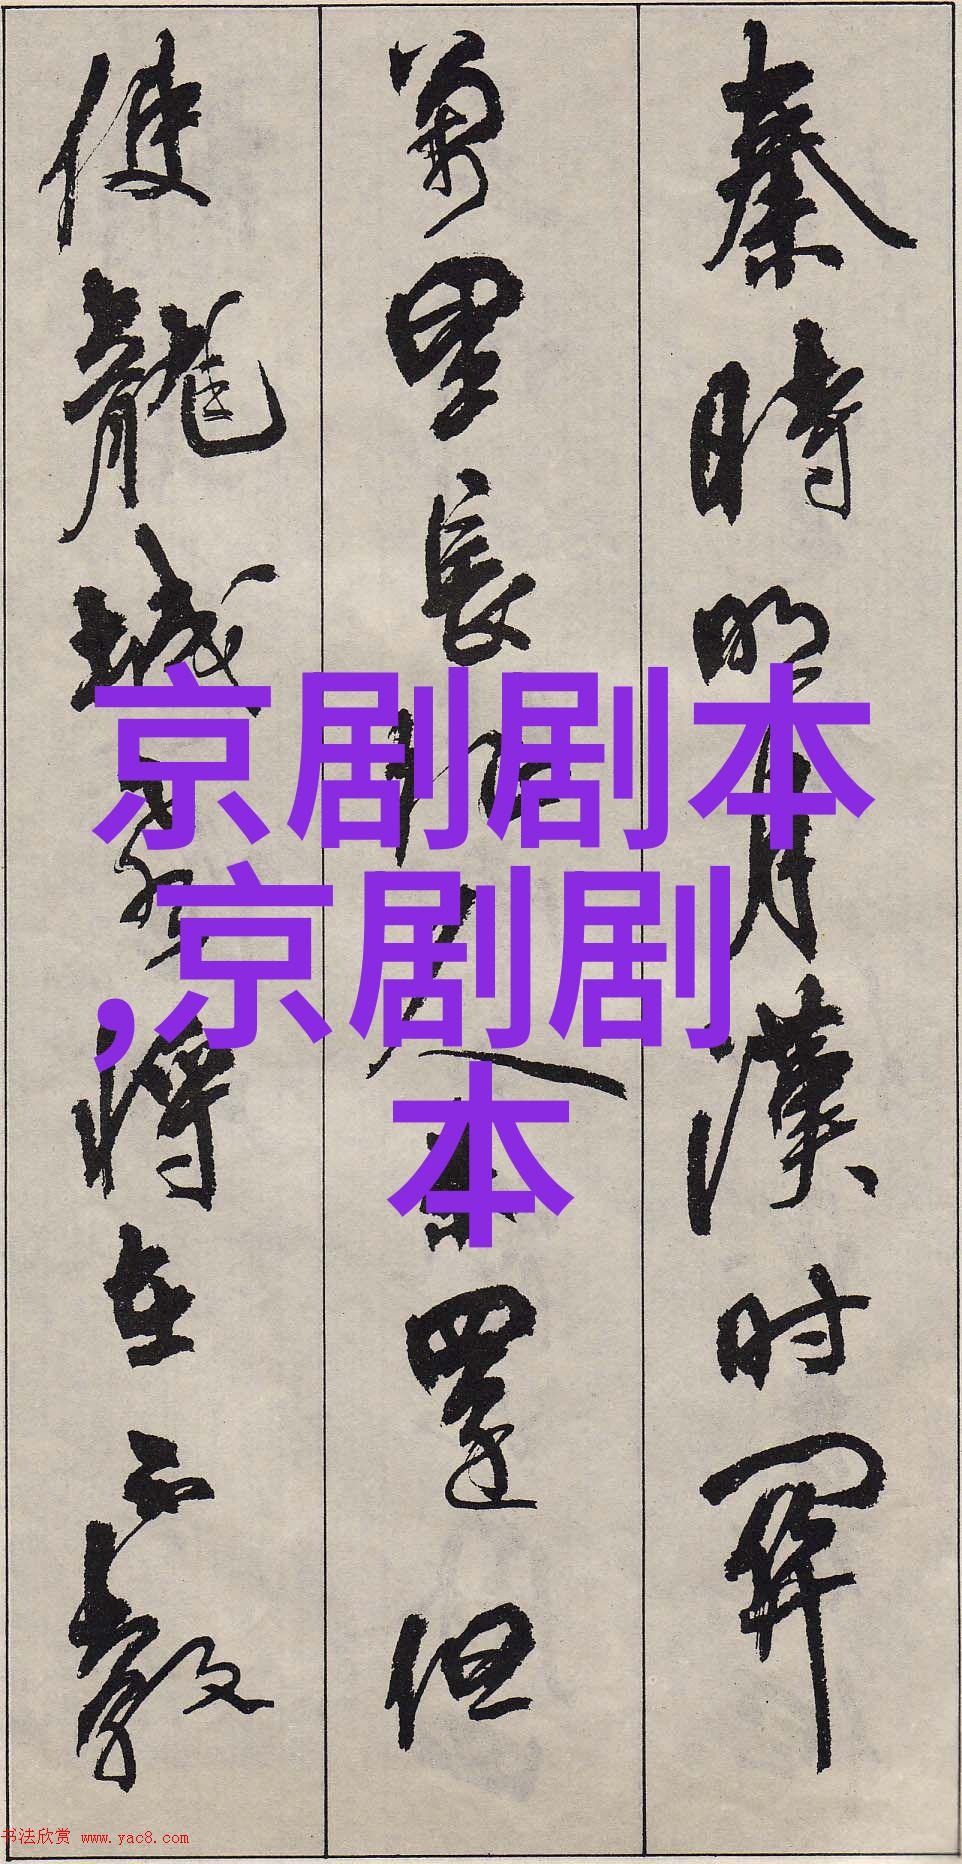 秦時明月漢时關
萬里長征人未還但
使龍城飛將在不教
京剧剧本
,京剧剧
本
书法欣赏 www.yac8.com